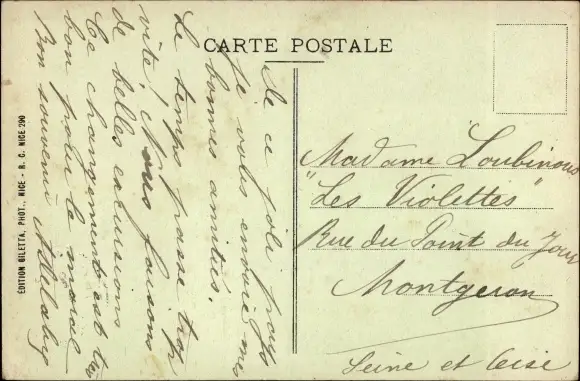 CARTE POSTALE
De ce joli pays
je vous envoie mes
bonnes amitiés.
Le temps passe trop
vite! Nous faisons
de belles excursions
Ce changement est très
bon pour le moral
Bon souvenir
Madame Loubinous
"Les Violettes"
Rue du Point du Jour
Montgeron
Seine et Oise
ÉDITION GILETTA, PHOT., NICE - R. C. NICE 290